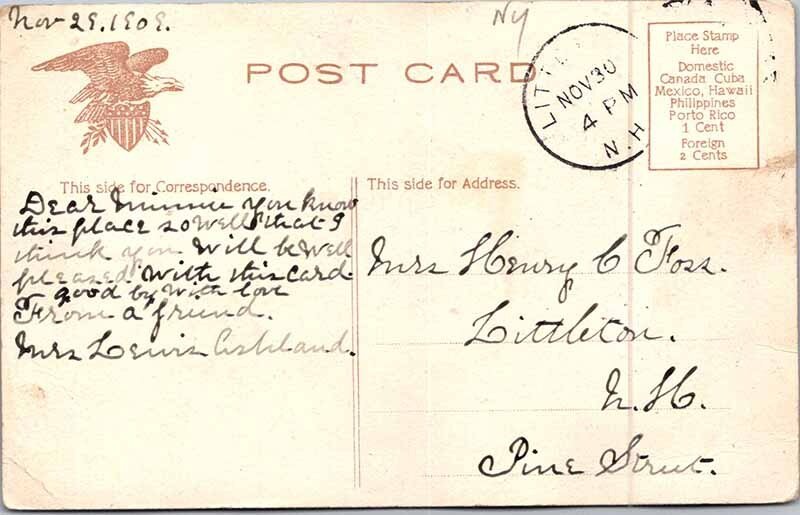 Nov 29. 1909.
Ny
POST CARD
LITTLE
NOV 30
4 PM
N.H
Place Stamp
Here
Domestic
Canada Cuba
Mexico, Hawaii
Philippines
Porto Rico
1 Cent
Foreign
2 Cents
This side for Correspondence.
Dear Minnie you know
this place so well that I
think you will be well
pleased with this card.
good by with love
From a friend.
Mrs Lewis Ashland.
This side for Address.
Mrs Henry C Foss.
Littleton.
N. H.
Pine Street.